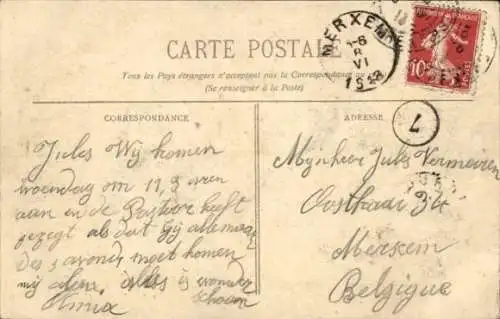 CARTE POSTALE
Tous les Pays étrangers n'acceptent pas la Correspondance au
(Se renseigner à la Poste)
MERXEM
6
8
VI
CORRESPONDANCE
ADRESSE
10
7
Jules Wij komen
woendag om 11,3 uren
aan en de Pastoor heeft
gezegt als dat Gij allemaal
des s avonds moet komen
mij alles is wonder
schoon
Mijnheer Jules Vermeiren
Oostkaai 34
Merxem
Belgique